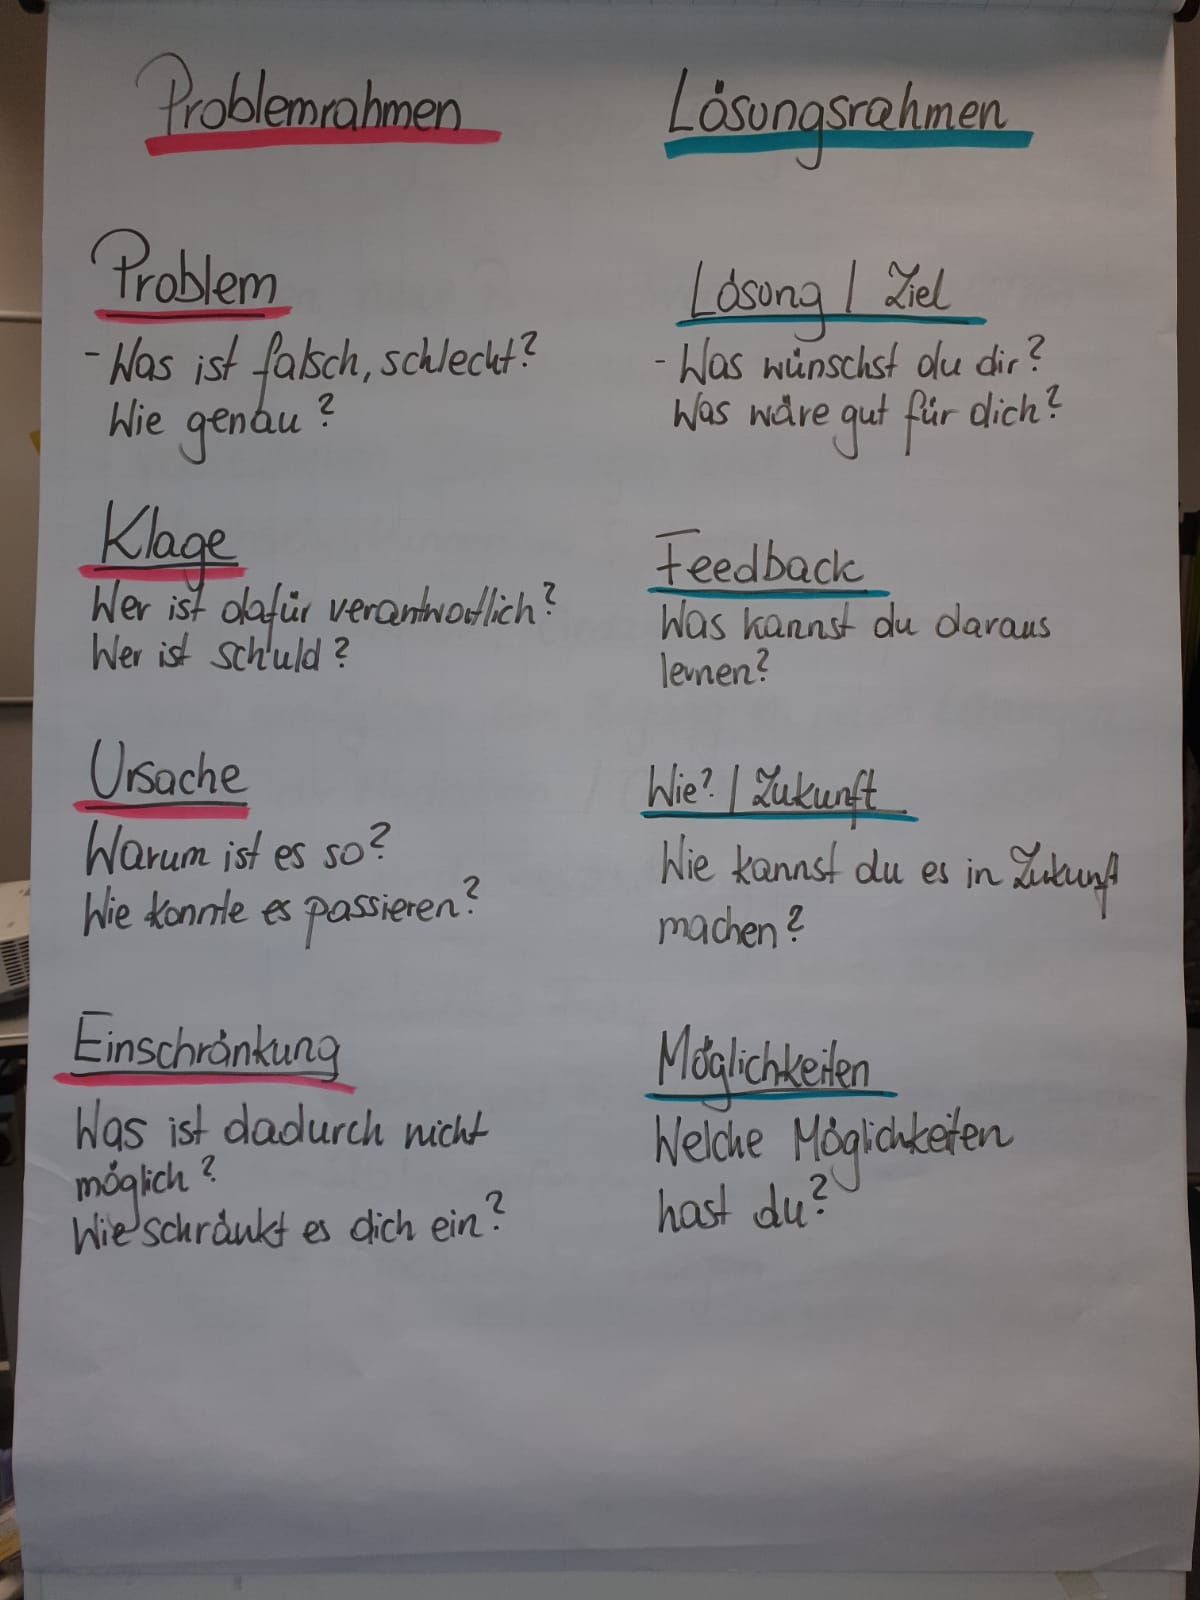 Problemrahmen
Problem
- Was ist falsch, schlecht?
Wie genau?
Klage
Wer ist dafür verantwortlich?
Wer ist schuld?
Ursache
Warum ist es so?
Wie konnte es passieren?
Einschränkung
Was ist dadurch nicht
möglich?
Wie schränkt es dich ein?
Lösungsrahmen
Lösung / Ziel
- Was wünschst du dir?
Was wäre gut für dich?
Feedback
Was kannst du daraus
lernen?
Wie? / Zukunft
Wie kannst du es in Zukunft
machen?
Möglichkeiten
Welche Möglichkeiten
hast du?